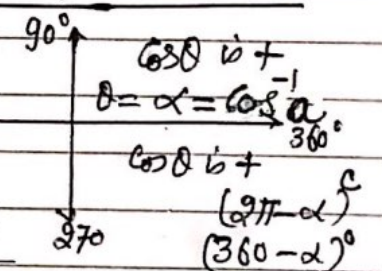 90°
Cosθ is +
θ = α = Cos⁻¹a
360°
Cosθ is +
(2π-α)ᶜ
270
(360-α)°